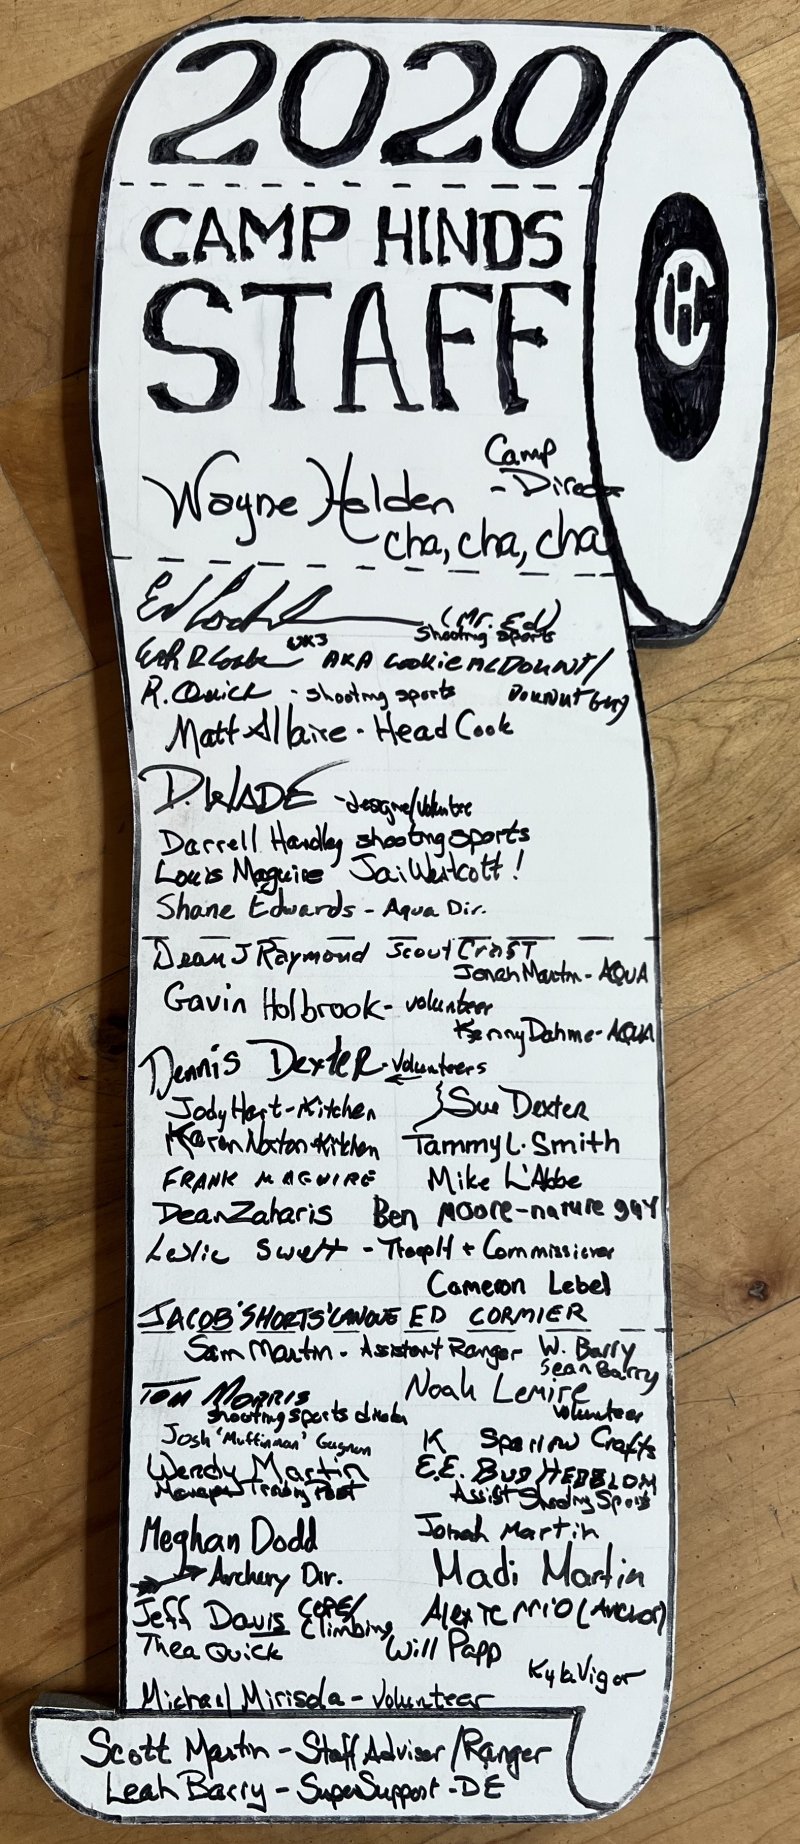 2020
CAMP HINDS
STAFF
Camp
Wayne Holden - Director
cha, cha, cha
(Mr. Ed)
shooting sports
AKA Cookie McDounut/
R. Quick - shooting sports Dounut Guy
Matt Allaire - Head Cook
D. WADE
Darrell Handley shooting sports
Louis Maguire Jai Westcott!
Shane Edwards - Aqua Dir.
Dean J Raymond Scout Craft
Jonah Martin - AQUA
Gavin Holbrook - volunteer
Kenny Dahms - AQUA
Dennis Dexter - volunteers
Jody Hart - Kitchen } Sue Dexter
Karen Norton - Kitchen Tammy L. Smith
FRANK MAGUIRE Mike L'Abbe
Dean Zaharis Ben Moore - nature guy
Leslie Swett - Troop H + Commissioner
Cameron Lebel
JACOB 'SHORTS' LANOUE ED CORMIER
Sam Martin - Assistant Ranger W. Barry
Sean Barry
Tom Morris Noah Lemire
shooting sports director volunteer
Josh 'Muffinman' Gagnon K Sparrow Crafts
Wendy Martin E.E. BUD HEBBLOM
Manager Trading Post Assist Shooting Sports
Meghan Dodd Jonah Martin
Archery Dir. Madi Martin
Jeff Davis COPE/
Climbing
Thea Quick Will Papp
Kyla Vigor
Michael Mirisola - volunteer
Scott Martin - Staff Adviser/Ranger
Leah Barry - SuperSupport - DE